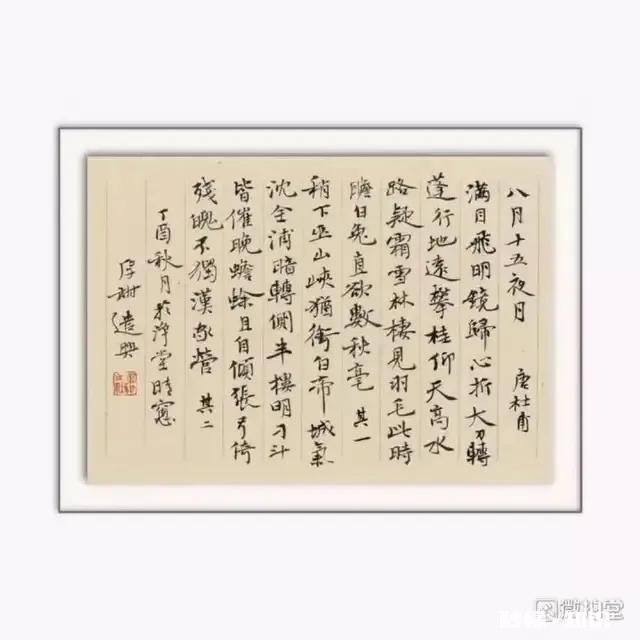 八月十五夜月 唐杜甫
滿目飛明鏡歸心折大刀轉
蓬行地遠攀桂仰天高水
路疑霜雪林棲見羽毛此時
瞻白兔直欲數秋毫 其一
稍下巫山峽猶銜白帝城氣
沈全浦暗轉側半樓明刁斗
皆催曉蟾蜍且自傾張弓倚
殘魄不獨漢家營 其二
丁酉秋月於淨堂晴窗
遣興
微拍堂